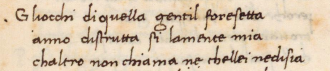 Gliocchi di quella gentil foresetta
anno distrutta si lamente mia
chaltro non chiama ne chellei nedisia